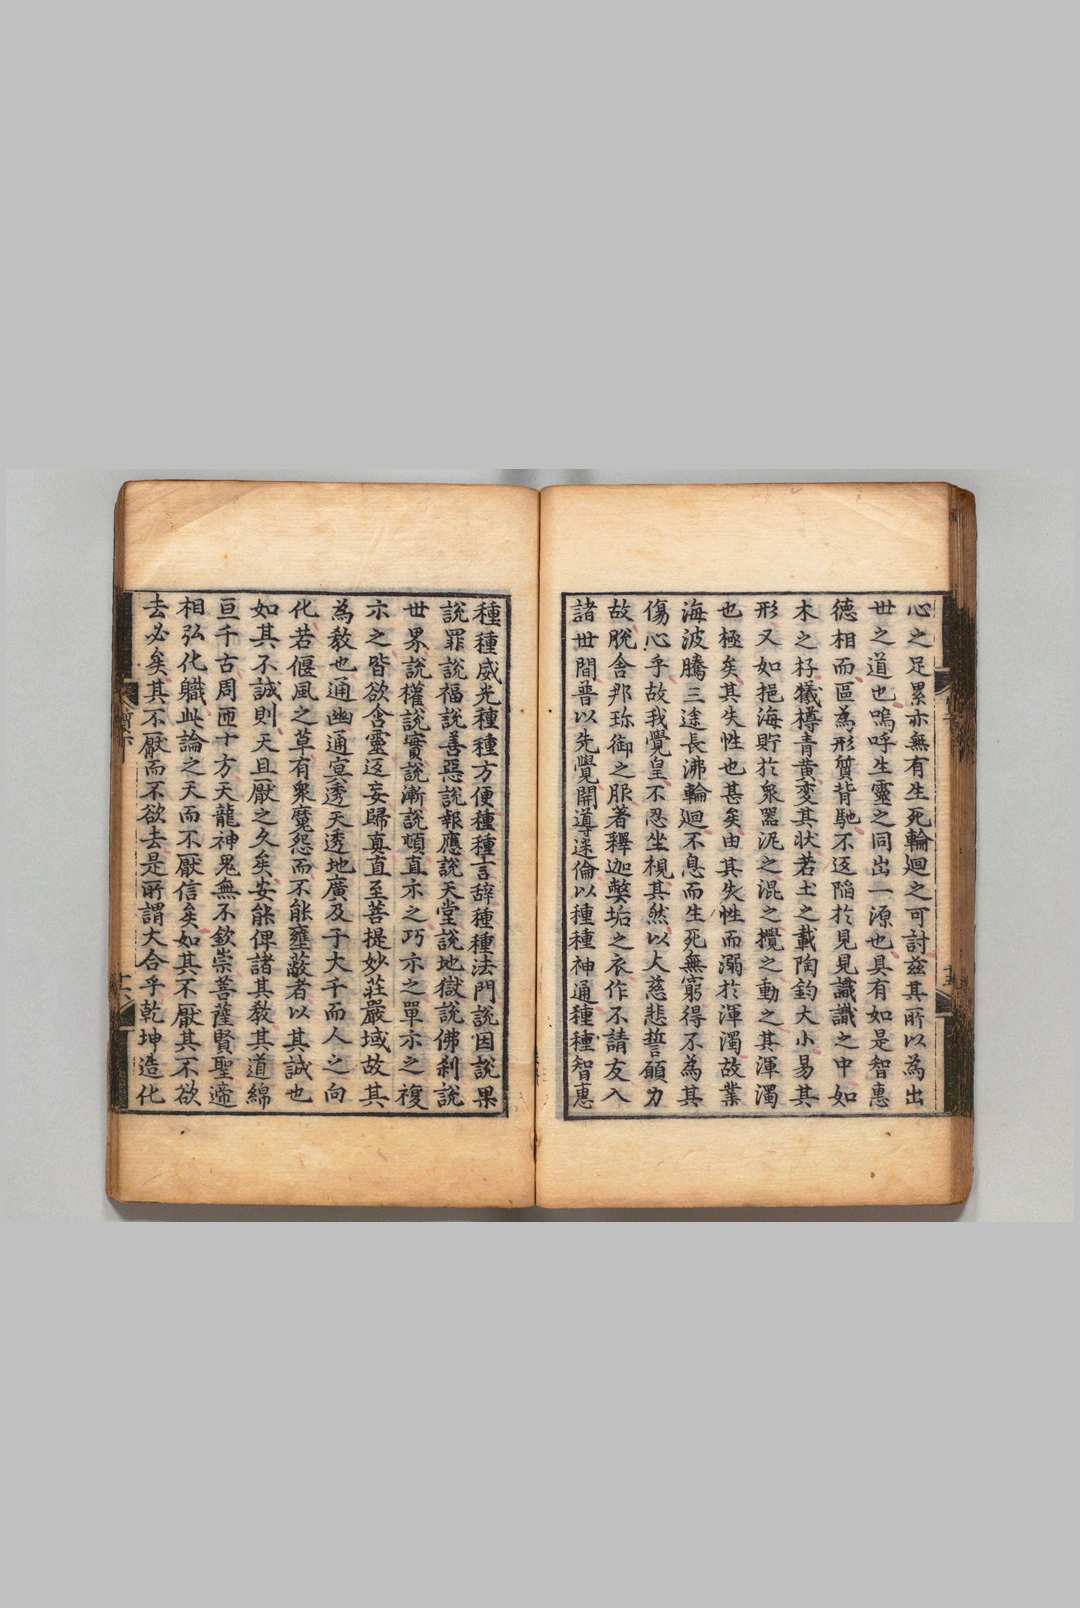 心之足累亦無有生死輪廻之可討兹其所以為出
世之道也嗚呼生靈之同出一源也具有如是智惠
德相而區為形質背馳不返陷於見見識識之中如
木之杍犧樽青黃変其状若土之載陶鈞大小易其
形又如挹海貯於衆器泥之混之攪之動之其渾濁
也極矣其失性也甚矣由其失性而溺於渾濁故業
海波騰三途長沸輪廻不息而生死無窮得不為其
傷心乎故我覺皇不忍坐視其然以大慈悲誓願力
故脫舍那珎御之服著釋迦獘垢之衣作不請友入
諸世間普以先覺開導迷倫以種種神通種種智惠
種種威光種種方便種種言辞種種法門說因說果
說罪說福說善惡說報應說天堂說地獄說佛刹說
世界說權說實說漸說頓直示之巧示之單示之複
示之皆欲含靈返妄歸真直至菩提妙莊嚴域故其
為教也通幽通冥透天透地廣及于大千而人之向
化若偃風之草有衆魔怨而不能壅蔽者以其誠也
如其不誠則天且厭之久矣安能俾諸其教其道綿
亘千古周匝十方天龍神鬼無不欽崇菩薩賢聖遞
相弘化軄此論之天而不厭信矣如其不厭其不欲
去必矣其不厭而不欲去是所謂大合乎乾坤造化
十六